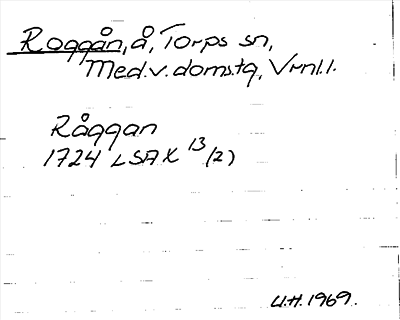 Roggån, å, Torps sn,
Med.v.domstg, Vrnl.l.
Råggan
1724 LSA X 13/2)
U.H. 1969.